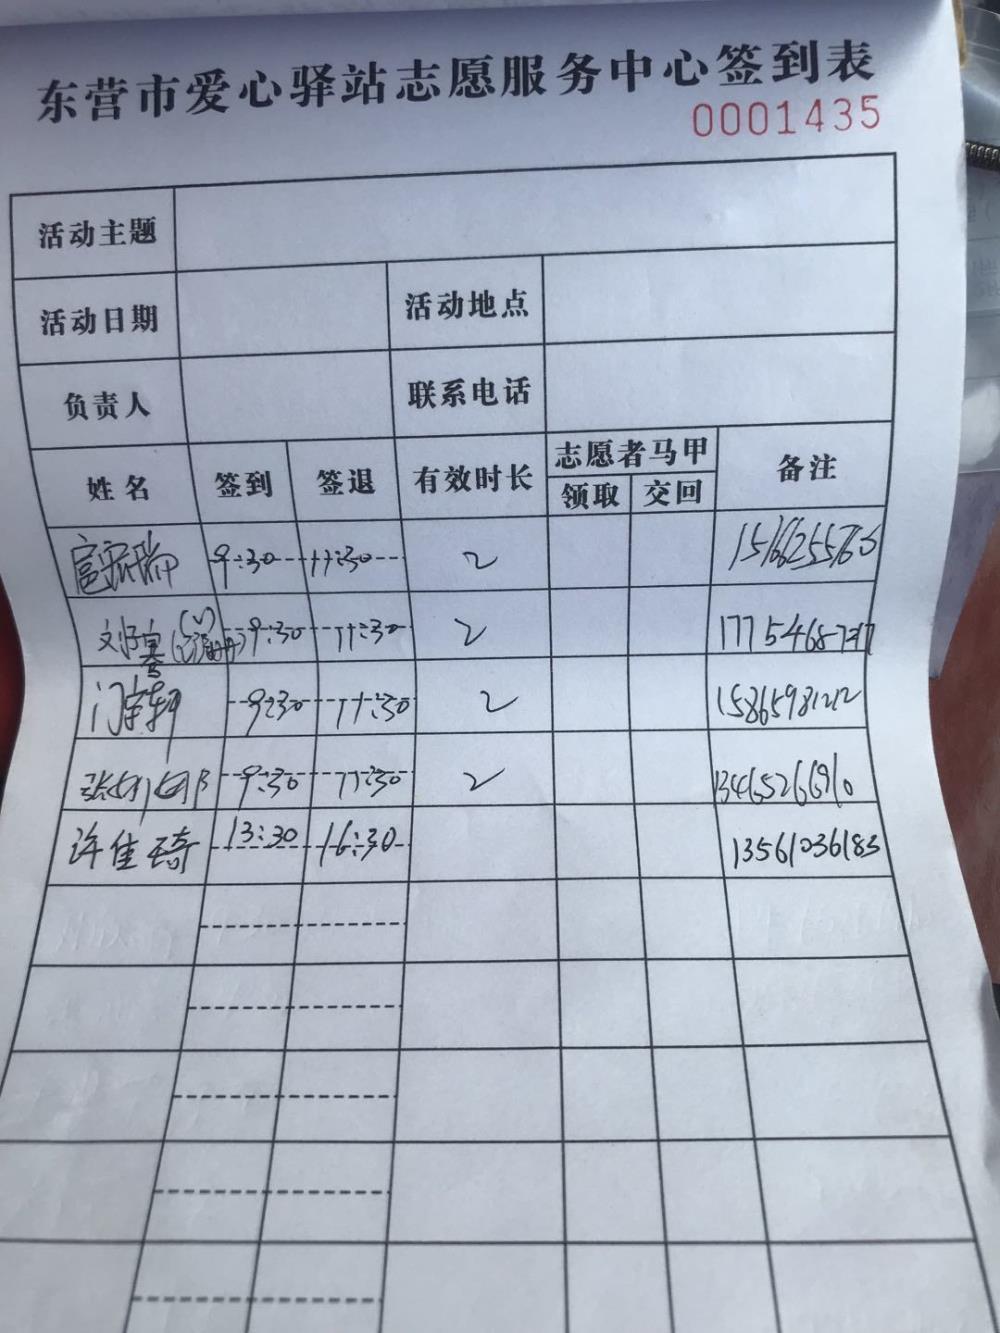 东营市爱心驿站志愿服务中心签到表
0001435
活动主题
活动日期 活动地点
负责人 联系电话
姓名 签到 签退 有效时长 志愿者马甲 备注
领取 交回
9:30 11:30 2
9:30 11:30 2
9:30 11:30 2 15865981212
9:30 11:30 2
许佳琦 13:30 16:30 13561036183